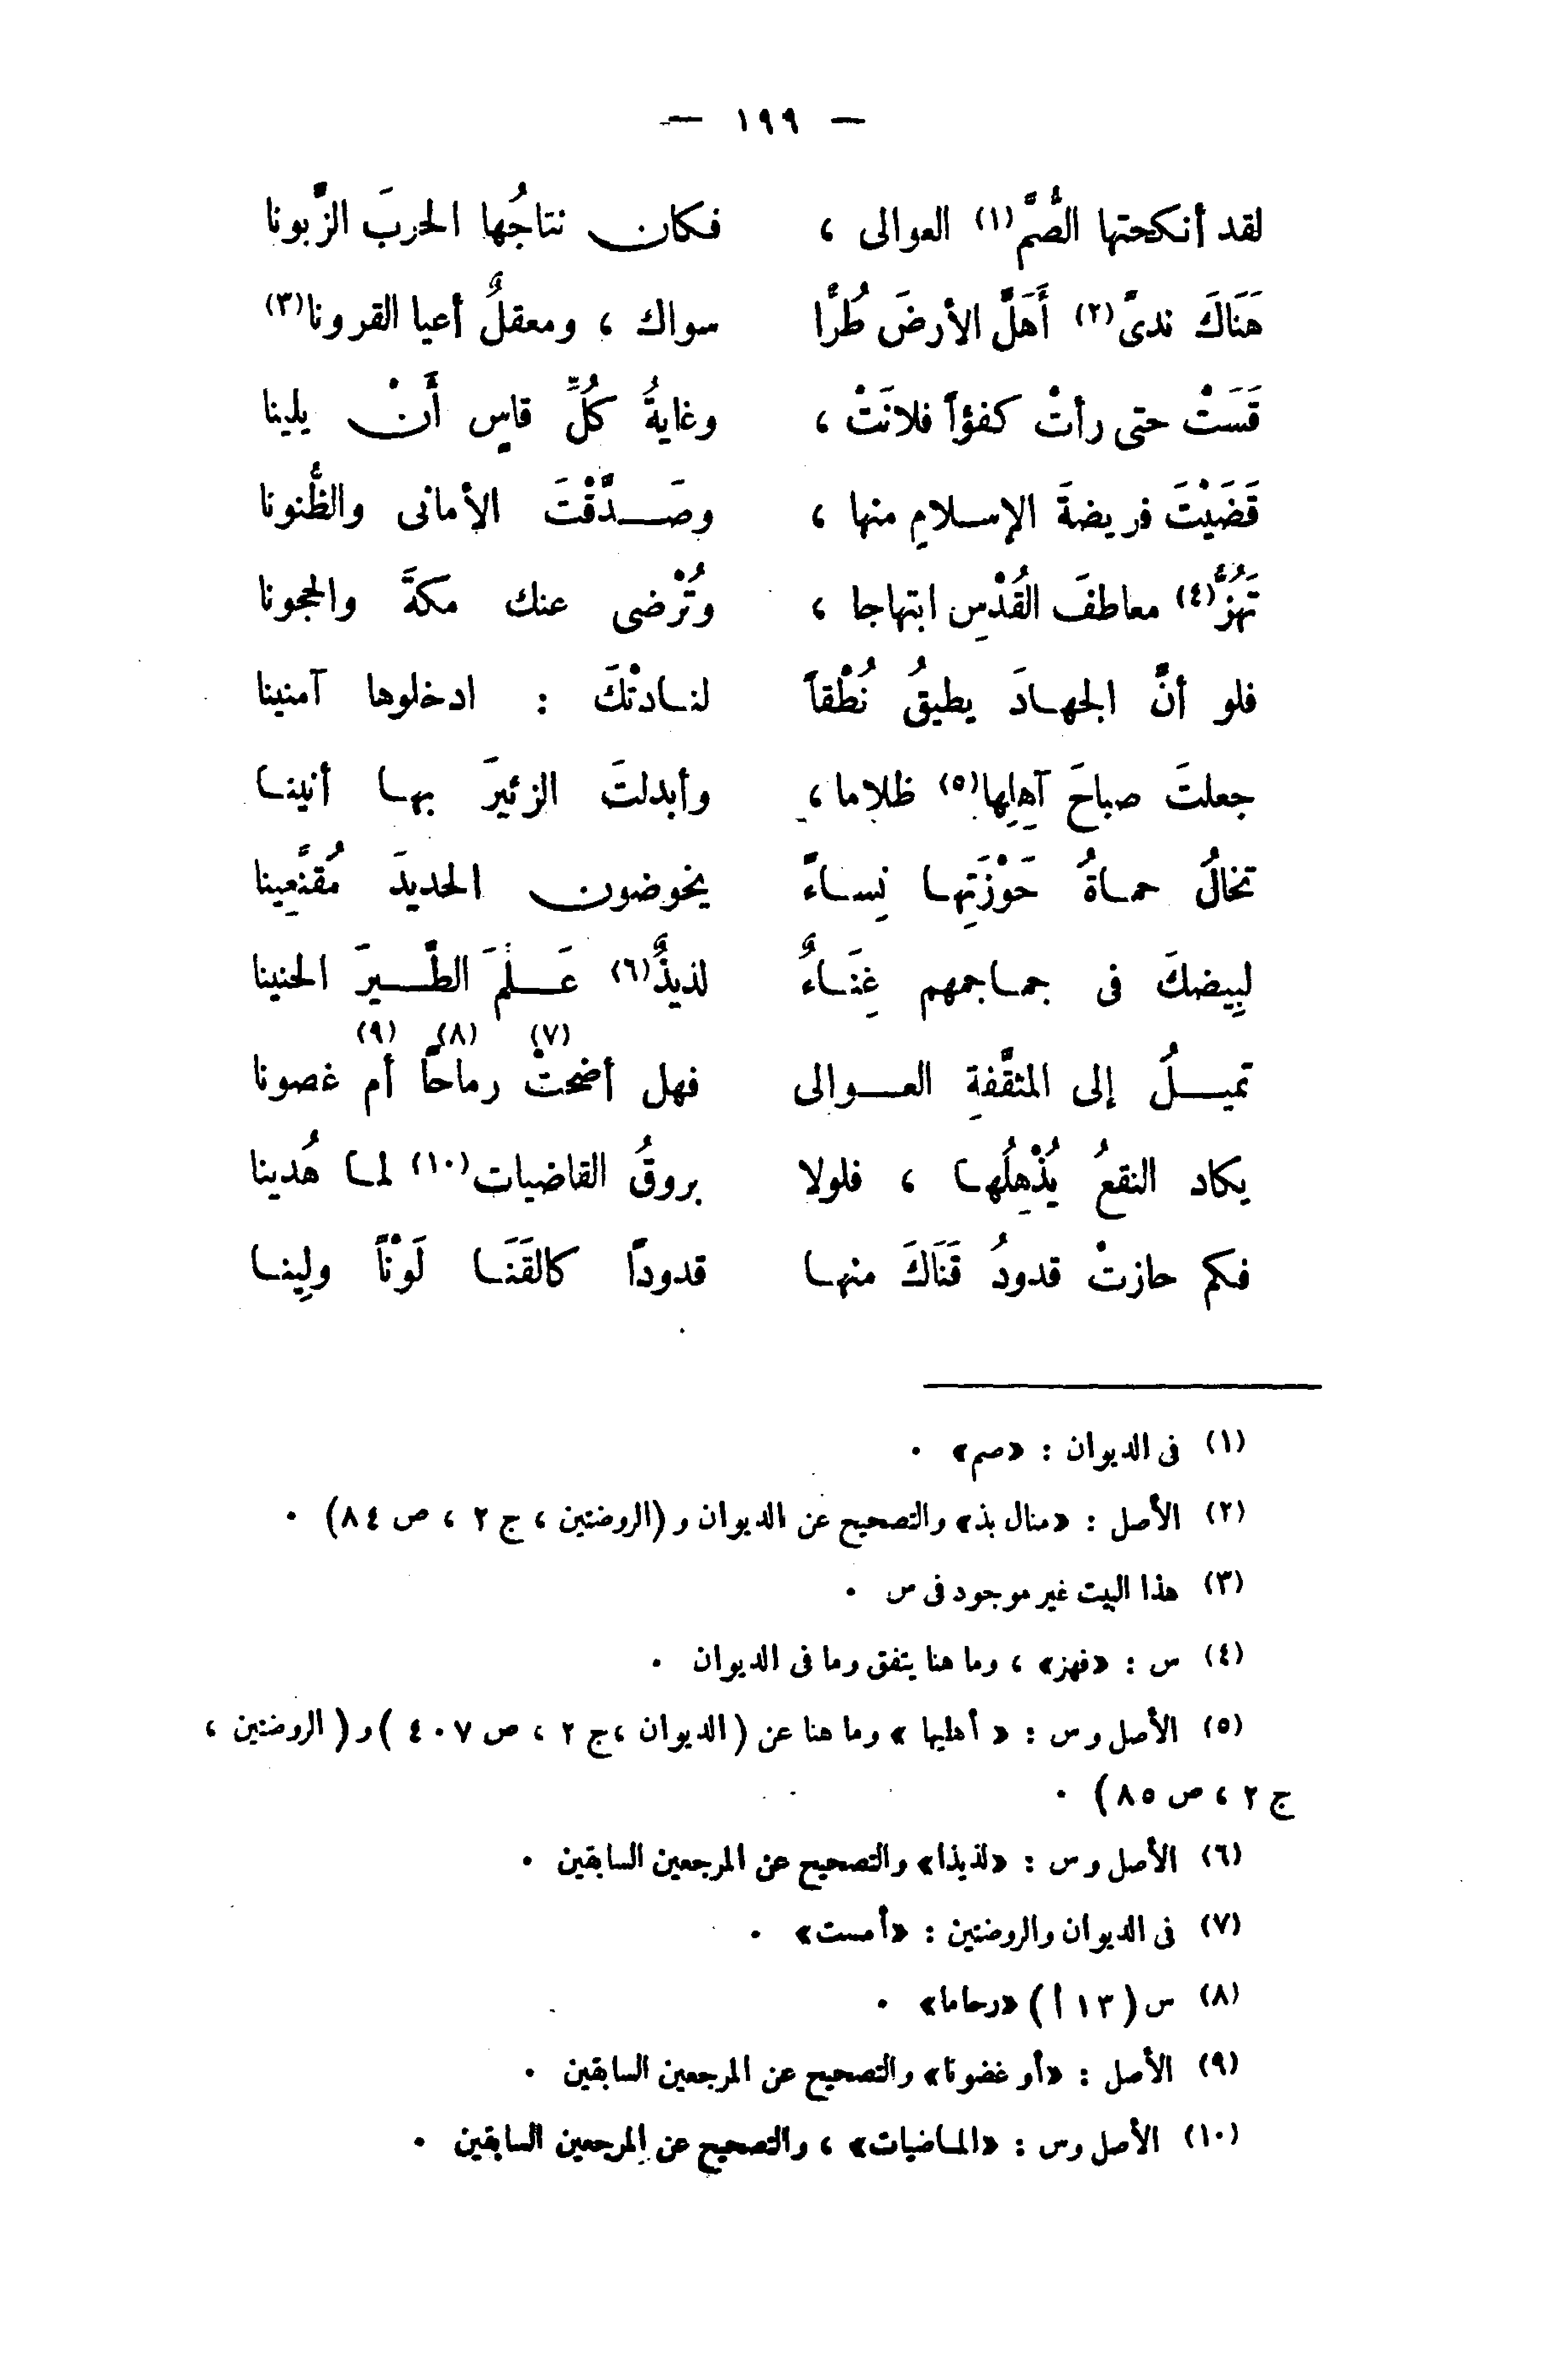 — ١٩٩ —
لقد أنكحتها الصُّمَّ(١) العوالى ، فكان نتاجُها الحربَ الزَّبونا
هَنَاكَ ندىً(٢) أَهَلَّ الأرضَ طُرًّا سواك ، ومعقلٌ أعيا القرونا(٣)
قَسَتْ حتى رأتْ كفؤاً فلانَتْ ، وغايةُ كُلِّ قاسٍ أَنْ يلينا
قَضَيْتَ فريضةَ الإسلامِ منها ، وصَدَّقْتَ الأمانى والظُّنونا
تَهُزُّ(٤) معاطفَ القُدْسِ ابتهاجا ، وتُرْضى عنك مكةَ والحجونا
فلو أنَّ الجهادَ يطيقُ نُطْقاً لنادتْكَ : ادخلوها آمنينا
جعلتَ صباحَ آهِلِها(٥) ظلاما ، وأبدلتَ الزئيرَ بها أنينا
تخالُ حماةُ حَوْزَتِها نِساءً يخوضون الحديدَ مُقنَّعِينا
لبِيضكَ فى جماجمهم غِنَاءٌ لذيذٌ(٦) عَلمَ الطَّيرَ الحنينا
تميلُ إلى المثقَّفةِ العوالى فهل أضحتْ(٧) رماحًا(٨) أم(٩) غصونا
يكاد النقعُ يُذْهِلُها ، فلولا بروقُ القاضيات(١٠) لما هُدينا
فكم حازتْ قدودُ قَنَاكَ منها قدودًا كالقَنَا لَوْنًا ولِينا
(١) فى الديوان : «صم» .
(٢) الأصل : «منال بذ» والتصحيح عن الديوان و (الروضتين ، ج ٢ ، ص ٨٤) .
(٣) هذا البيت غير موجود فى س .
(٤) س : «فهز» ، وما هنا يتفق وما فى الديوان .
(٥) الأصل وس : « أهليها » وما هنا عن (الديوان ، ج ٢ ، ص ٤٠٧ ) و ( الروضتين ،
ج ٢ ، ص ٨٥) .
(٦) الأصل وس : «لذيذا» والتصحيح عن المرجعين السابقين .
(٧) فى الديوان والروضتين : «أمست» .
(٨) س ( ١٣ أ ) «رحاما» .
(٩) الأصل : «أو غضونا» والتصحيح عن المرجعين السابقين .
(١٠) الأصل وس : «الماضيات» ، والتصحيح عن المرجعين السابقين .